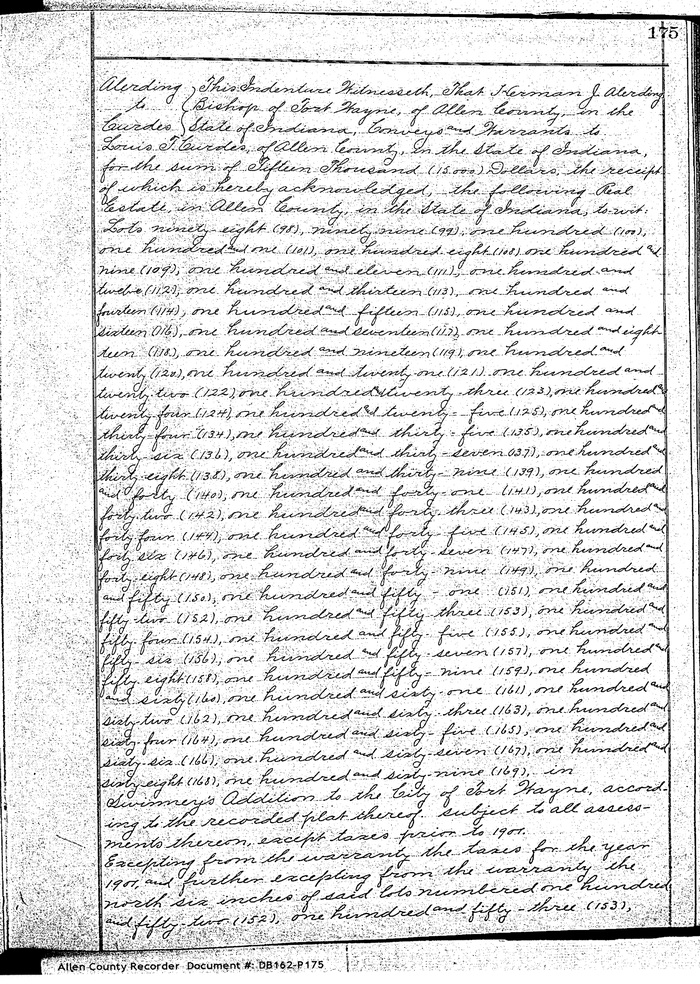 175
Alerding } This Indenture Witnesseth, That Herman J. Alerding
to { Bishop of Fort Wayne, of Allen County, in the
Curdes { State of Indiana, Conveys and Warrants to
Louis F. Curdes, of Allen County, in the State of Indiana,
for the sum of Fifteen Thousand (15.000) Dollars, the receipt
of which is hereby acknowledged, the following Real
Estate, in Allen County, in the State of Indiana, to-wit:
Lots ninety-eight (98), ninety-nine (99), one hundred (100),
one hundred and one (101), one hundred eight (108) one hundred and
nine (109), one hundred and eleven (111), one hundred and
twelve (112), one hundred and thirteen (113), one hundred and
fourteen (114), one hundred and fifteen (115), one hundred and
sixteen (116), one hundred and seventeen (117), one hundred and eight
teen (118), one hundred and nineteen (119), one hundred and
twenty (120), one hundred and twenty one (121) one hundred and
twenty-two (122), one hundred & twenty-three (123), one hundred and
twenty four (124), one hundred and twenty-five (125), one hundred and
thirty-four (134), one hundred and thirty-five (135), one hundred and
thirty-six (136), one hundred and thirty-seven (137), one hundred and
thirty-eight (138), one hundred and thirty-nine (139), one hundred
and forty (140), one hundred and forty-one (141), one hundred and
forty-two (142), one hundred and forty-three (143), one hundred and
forty four (144), one hundred and forty-five (145), one hundred and
forty six (146), one hundred and forty-seven (147), one hundred and
forty-eight (148), one hundred and forty-nine (149), one hundred
and fifty (150), one hundred and fifty-one (151), one hundred and
fifty-two (152), one hundred and fifty-three (153), one hundred and
fifty four (154), one hundred and fifty-five (155), one hundred and
fifty-six (156), one hundred and fifty-seven (157), one hundred and
fifty eight (158), one hundred and fifty-nine (159), one hundred
and sixty (160), one hundred and sixty-one (161), one hundred and
sixty-two (162), one hundred and sixty-three (163), one hundred and
sixty-four (164), one hundred and sixty-five (165), one hundred and
sixty-six (166), one hundred and sixty-seven (167), one hundred and
sixty-eight (168), one hundred and sixty-nine (169), in
Swinney's Addition to the City of Fort Wayne, accord-
ing to the recorded plat thereof. subject to all assess-
ments thereon, except taxes prior to 1901.
Excepting from the warranty the taxes for the year
1901, and further excepting from the warranty the
north six inches of said lots numbered one hundred
and fifty-two (152), one hundred and fifty-three (153),
Allen County Recorder Document #: DB162-P175